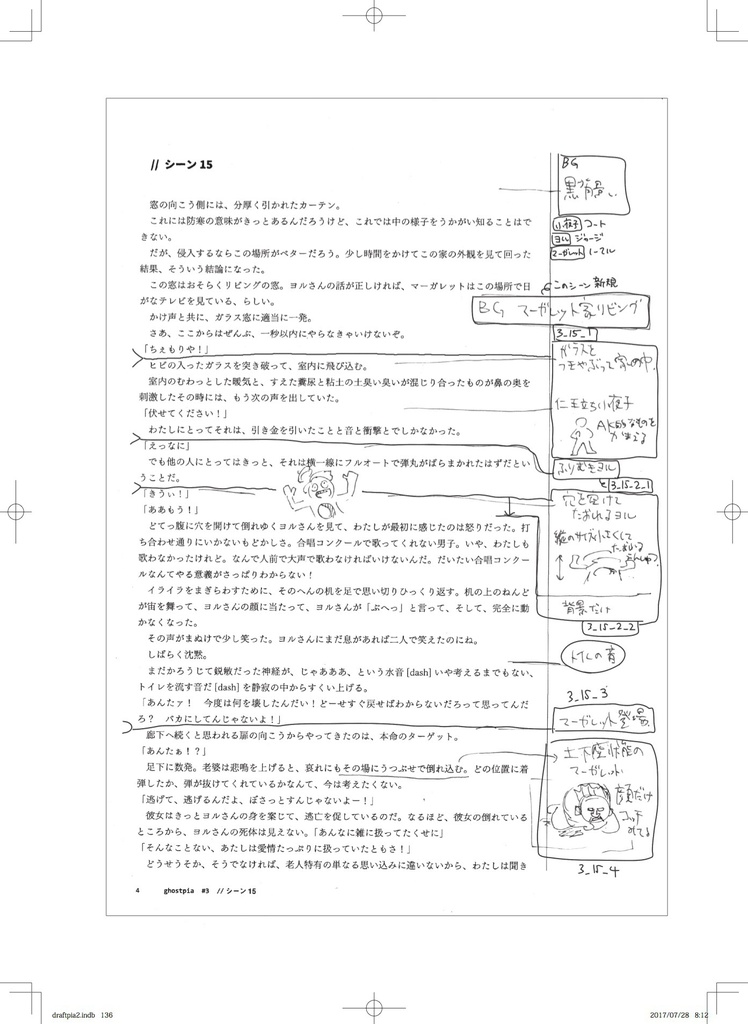 // シーン 15
窓の向こう側には、分厚く引かれたカーテン。
これには防寒の意味がきっとあるんだろうけど、これでは中の様子をうかがい知ることはで
きない。
だが、侵入するならこの場所がベターだろう。少し時間をかけてこの家の外観を見て回った
結果、そういう結論になった。
この窓はおそらくリビングの窓。ヨルさんの話が正しければ、マーガレットはこの場所で日
がなテレビを見ている、らしい。
かけ声と共に、ガラス窓に適当に一発。
さあ、ここからはぜんぶ、一秒以内にやらなきゃいけないぞ。
「ちぇもりや！」
ヒビの入ったガラスを突き破って、室内に飛び込む。
室内のむわっとした暖気と、すえた糞尿と粘土の土臭い臭いが混じり合ったものが鼻の奥を
刺激したその時には、もう次の声を出していた。
「伏せてください！」
わたしにとってそれは、引き金を引いたことと音と衝撃とでしかなかった。
「えっなに」
でも他の人にとってはきっと、それは横一線にフルオートで弾丸がばらまかれたはずだとい
うことだ。
「きうぃ！」
「ああもう！」
どてっ腹に穴を開けて倒れゆくヨルさんを見て、わたしが最初に感じたのは怒りだった。打
ち合わせ通りにいかないもどかしさ。合唱コンクールで歌ってくれない男子。いや、わたしも
歌わなかったけれど。なんで人前で大声で歌わなければいけないんだ。だいたい合唱コンクー
ルなんてやる意義がさっぱりわからない！
イライラをまぎらわすために、そのへんの机を足で思い切りひっくり返す。机の上のねんど
が宙を舞って、ヨルさんの顔に当たって、ヨルさんが「ぶへっ」と言って、そして、完全に動
かなくなった。
その声がまぬけで少し笑った。ヨルさんにまだ息があれば二人で笑えたのにね。
しばらく沈黙。
まだかろうじて鋭敏だった神経が、じゃあああ、という水音 [dash] いや考えるまでもない、
トイレを流す音だ [dash] を静寂の中からすくい上げる。
「あんたァ！　今度は何を壊したんだい！どーせすぐ戻せばわからないだろって思ってんだ
ろ？　バカにしてんじゃないよ！」
廊下へ続くと思われる扉の向こうからやってきたのは、本命のターゲット。
「あんたぁ！？」
足下に数発。老婆は悲鳴を上げると、哀れにもその場にうつぶせで倒れ込む。どの位置に着
弾したか、弾が抜けてくれているかなんて、今は考えたくない。
「逃げて、逃げるんだよ、ぼさっとすんじゃないよー！」
彼女はきっとヨルさんの身を案じて、逃亡を促しているのだ。なるほど、彼女の倒れている
ところから、ヨルさんの死体は見えない。「あんなに雑に扱ってたくせに」
「そんなことない、あたしは愛情たっぷりに扱っていたともさ！」
どうせうそか、そうでなければ、老人特有の単なる思い込みに違いないから、わたしは聞き
4 ghostpia #3 // シーン 15
BG
黒背景
小夜子 コート
ヨル ジャージ
マーガレット ノーマル
このシーン新規
BG マーガレット家リビング
3_15_1
ガラスを
つきやぶって家の中.
仁王立ち小夜子
AK的なものを
かまえる
ふりむきヨル
3_15_2_1
穴を空けて
たおれるヨル
縦のサイズ小さくして
背景だけ
3_15_2_2
トイレの音
3_15_3
マーガレット登場
土下座状態の
マーガレット
顔だけ
コッチ
みてる
3_15_4
draftpia2.indb 136
2017/07/28 8:12